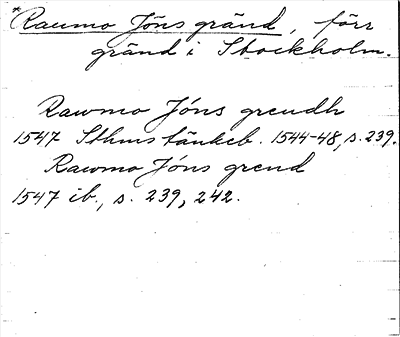 *Raumo Jöns gränd, förr
gränd i Stockholm.
Rawmo Jöns grendh
1547 Sthms tänkeb. 1544-48, s. 239.
Rawmo Jöns grend
1547 ib., s. 239, 242.